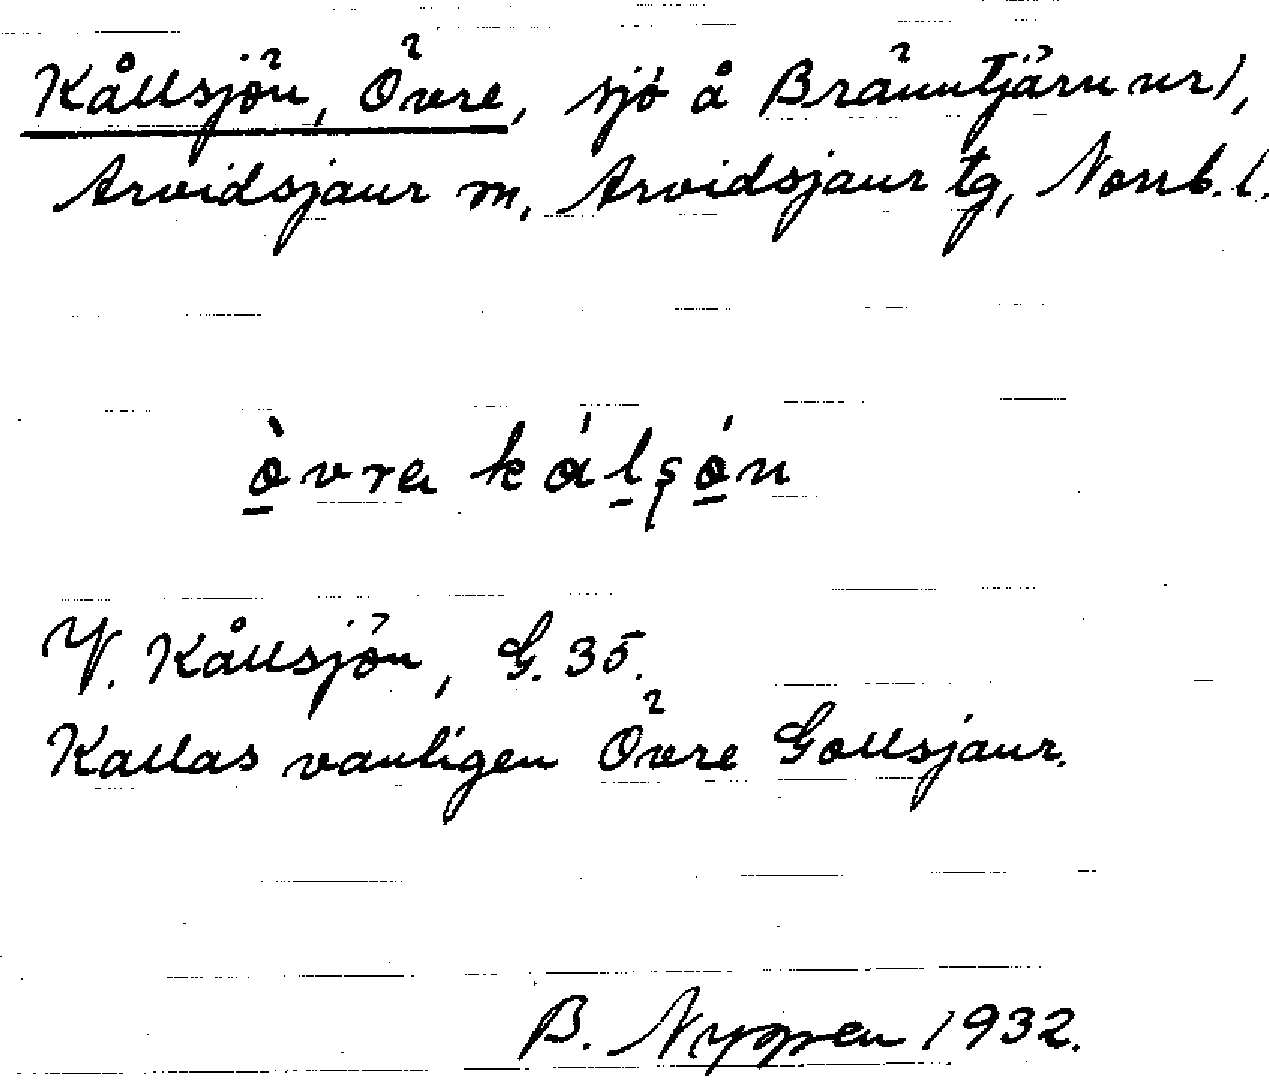 Kållsjön, Övre, sjö å Bränntjärn nr 1,
Arvidsjaur m, Arvidsjaur tg, Norrb. l.
ò̱vra kálş̱ó̱n
V. Kållsjön, G. 35.
Kallas vanligen Övre Gollsjaur.
B. Nyppen 1932.